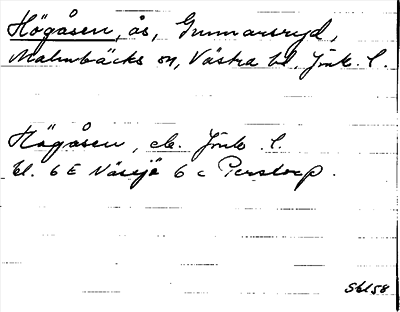 Högåsen, ås, Gunnarsryd,
Malmbäcks sn, Västra hd. Jönk. l.
Högåsen, ek. Jönk. l.
bl. 6 E Nässjö 6 c Perstorp.
Skl 58